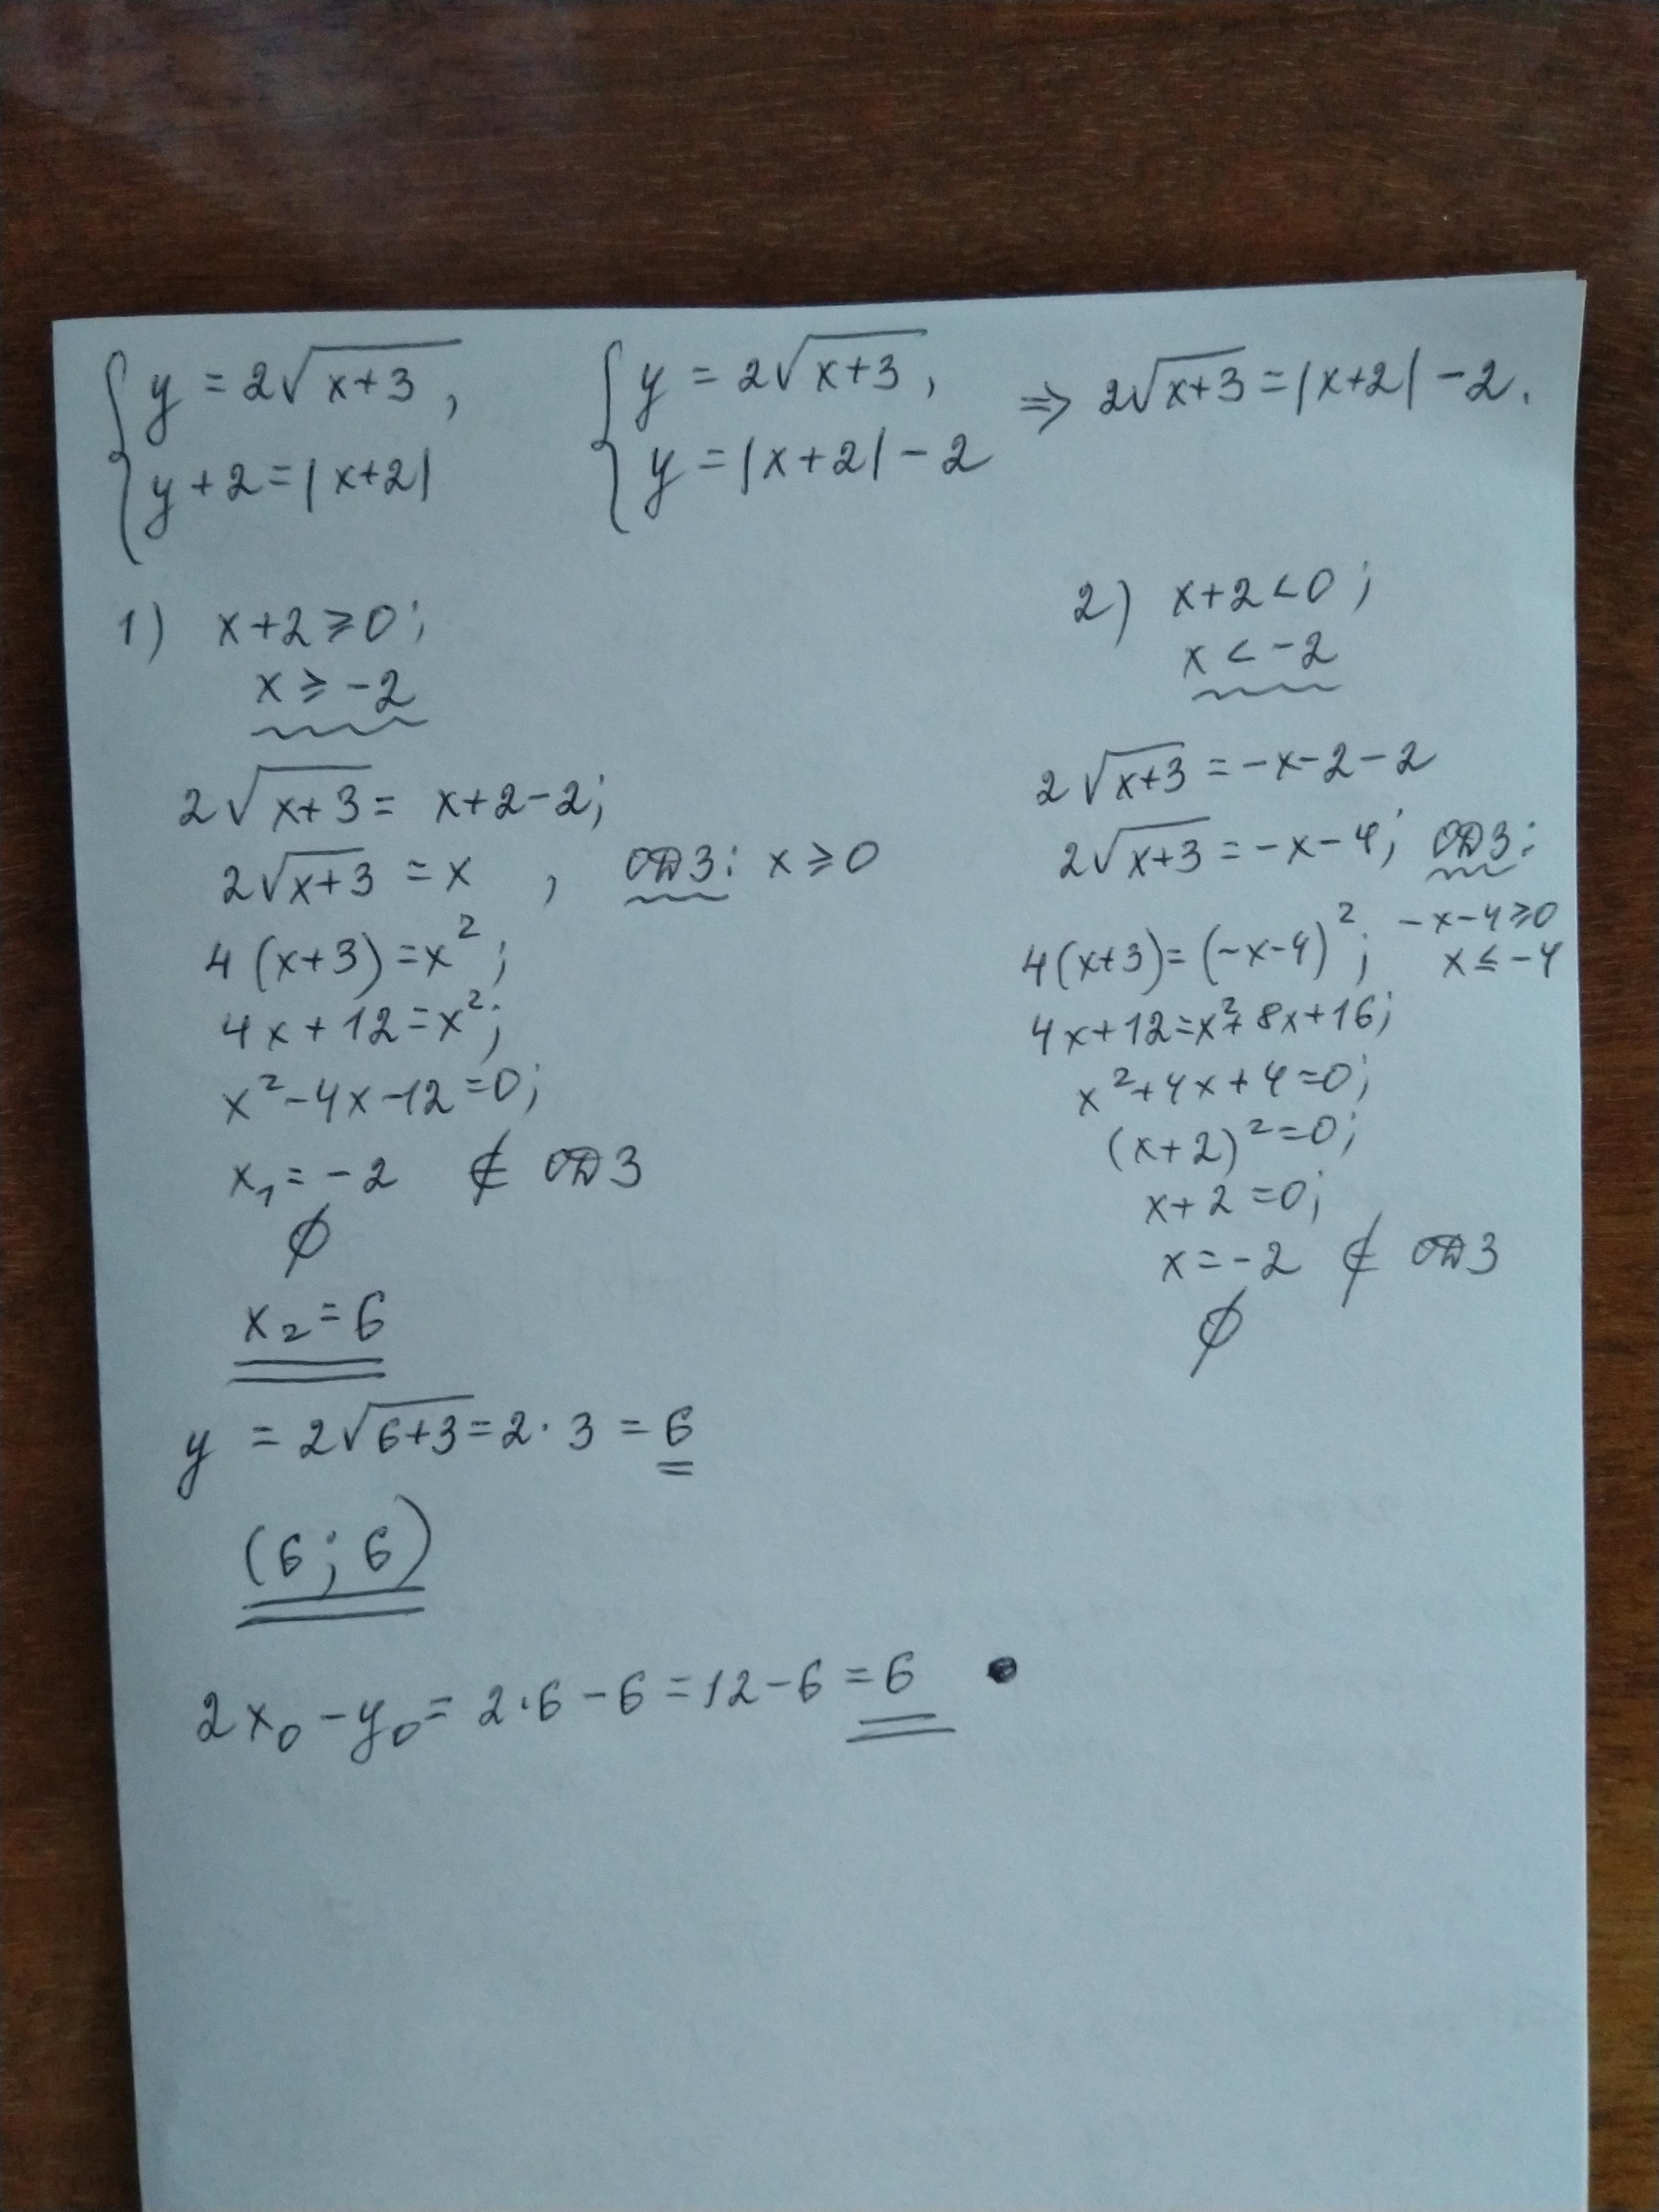 { y = 2√(x+3), y + 2 = |x+2|
{ y = 2√(x+3), y = |x+2| - 2
⇒ 2√(x+3) = |x+2| - 2.
1) x+2 ⩾ 0;
x ⩾ -2
2√(x+3) = x+2-2;
2√(x+3) = x , ОДЗ: x ⩾ 0
4(x+3) = x²;
4x + 12 = x²;
x² - 4x - 12 = 0;
x₁ = -2 ∉ ОДЗ
∅
x₂ = 6
y = 2√(6+3) = 2 · 3 = 6
(6; 6)
2x₀ - y₀ = 2·6 - 6 = 12 - 6 = 6
2) x+2 < 0;
x < -2
2√(x+3) = -x-2-2
2√(x+3) = -x-4; ОДЗ:
-x-4 ⩾ 0
4(x+3) = (-x-4)²; x ⩽ -4
4x+12 = x² + 8x + 16;
x² + 4x + 4 = 0;
(x+2)² = 0;
x + 2 = 0;
x = -2 ∉ ОДЗ
∅